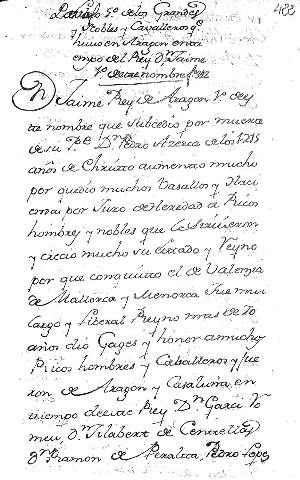 488
5º de los Grandes
y Nobles y Cavalleros q.
huvo en Aragon en ta
empo del Rey Dⁿ Jaime
1º de este nombre
Dⁿ Jaime Rey de Aragon 1º de es
te nombre que subcedio por muerte
de su Pᵉ Dⁿ Pedro acerca de los 1215
años de Christo aumento mucho
por quedio muchos Vasallos y
por Juro de Heredad a Ricos
hombres y nobles que le sirvieron
y crecio mucho su Estado y Reyno
por que conquisto el de Valencia
de Mallorca y Menorca Fue muy
Largo y Liberal Reyno mas de 70
años dio Gages y honor a mucho
Ricos hombres y Cavalleros y fue
ron de Aragon y Cataluña, en
tiempo de este Rey Dⁿ Garci Ro
meu, Dⁿ Jilabert de Centrellas
Dⁿ Ramon de Peralta, Pedro Lope